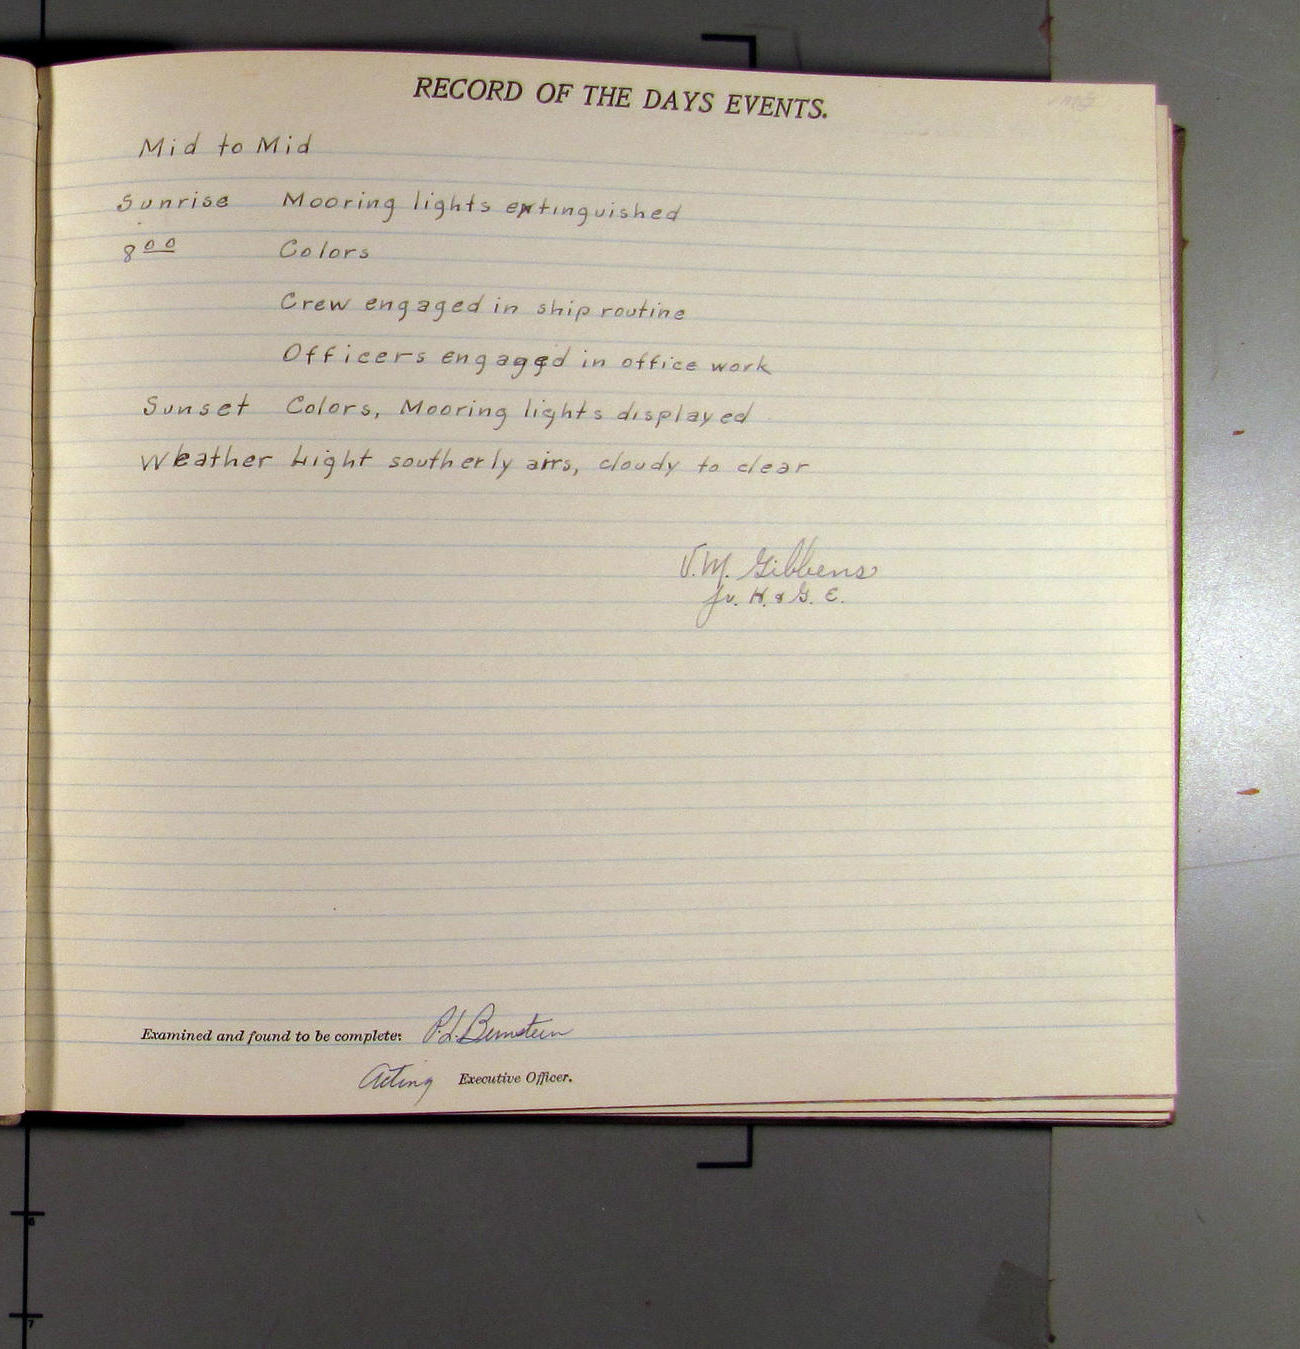 RECORD OF THE DAYS EVENTS.
Mid to Mid
Sunrise Mooring lights extinguished
8 00 Colors
Crew engaged in ship routine
Officers engaged in office work
Sunset Colors, Mooring lights displayed
Weather Light southerly airs, cloudy to clear
V.M. Gibbens
Jr. H. & G. E.
Examined and found to be complete: P.L. Bernstein
Acting Executive Officer.
6
7